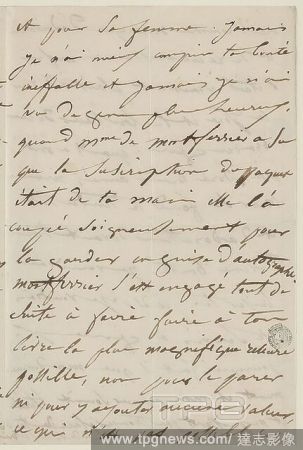 et pour sa femme. jamais
je n'ai mieux compris ta bonté
ineffable et jamais je n'ai
vu de gens plus heureux.
quand Mme de montferrier a su
que la suscription du paquet
était de ta main elle l'a
coupée soigneusement pour
la garder en guise d'autographe
montferrier s'est engagé tout de
suite à faire faire à ton
livre la plus magnifique reliure
possible, non pour le parer
ni pour y ajouter aucune valeur,
ce qui n'est
TPG
www.tpgnews.com/達志影像